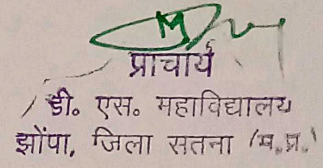 प्राचार्य
डी. एस. महाविद्यालय
झोंपा, जिला सतना (म.प्र.)